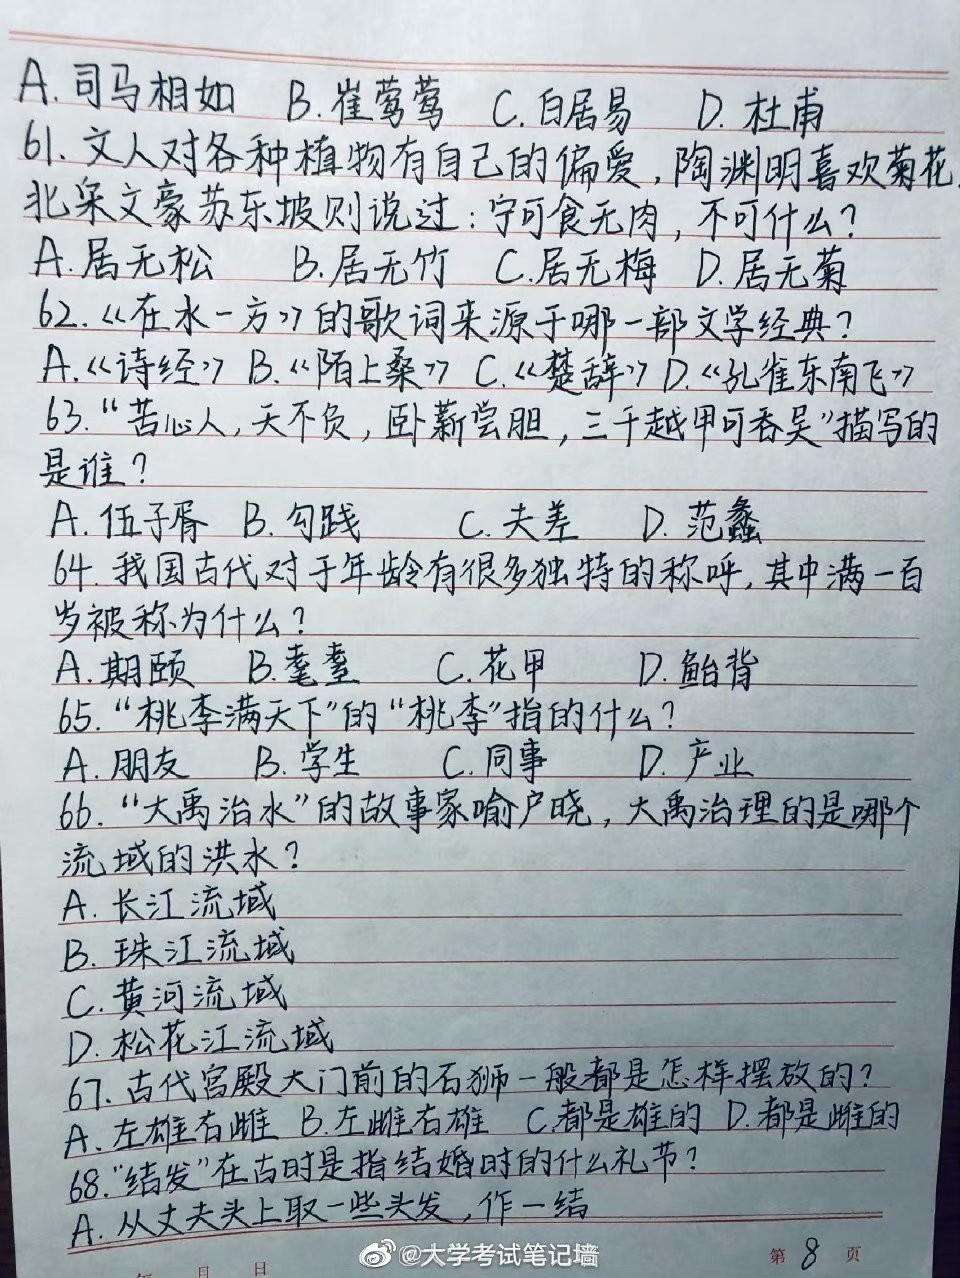 A. 司马相如 B. 崔莺莺 C. 白居易 D. 杜甫
61. 文人对各种植物有自己的偏爱，陶渊明喜欢菊花，
北宋文豪苏东坡则说过：宁可食无肉，不可什么？
A. 居无松 B. 居无竹 C. 居无梅 D. 居无菊
62. 《在水一方》的歌词来源于哪一部文学经典？
A.《诗经》 B.《陌上桑》 C.《楚辞》 D.《孔雀东南飞》
63. “苦心人，天不负，卧薪尝胆，三千越甲可吞吴”描写的
是谁？
A. 伍子胥 B. 勾践 C. 夫差 D. 范蠡
64. 我国古代对于年龄有很多独特的称呼，其中满一百
岁被称为什么？
A. 期颐 B. 耄耋 C. 花甲 D. 鲐背
65. “桃李满天下”的“桃李”指的什么？
A. 朋友 B. 学生 C. 同事 D. 产业
66. “大禹治水”的故事家喻户晓，大禹治理的是哪个
流域的洪水？
A. 长江流域
B. 珠江流域
C. 黄河流域
D. 松花江流域
67. 古代宫殿大门前的石狮一般都是怎样摆放的？
A. 左雄右雌 B. 左雌右雄 C. 都是雄的 D. 都是雌的
68. “结发”在古时是指结婚时的什么礼节？
A. 从丈夫头上取一些头发，作一结
年 月 日 @大学考试笔记墙 第 8 页